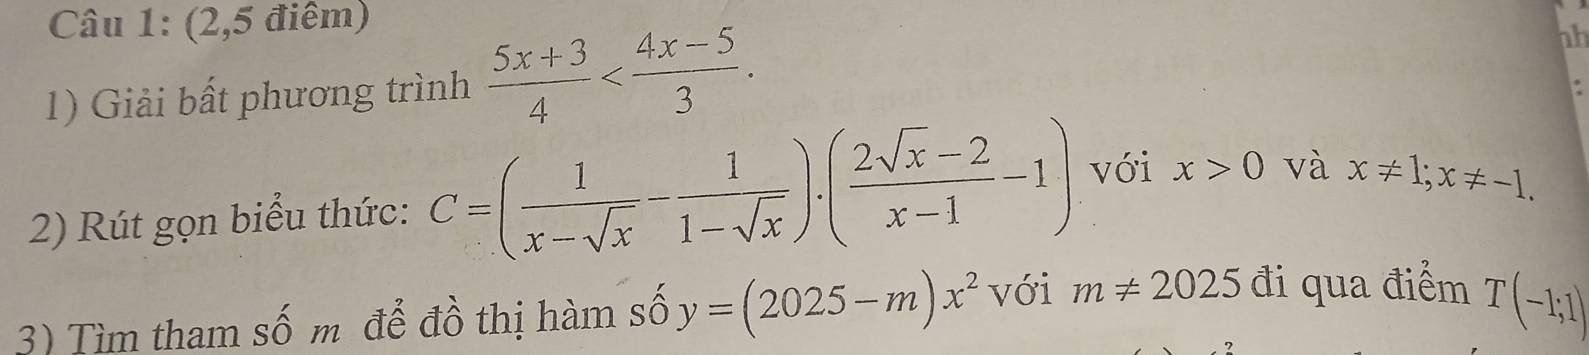 Câu 1: (2,5 điểm)
1) Giải bất phương trình $\frac{5x+3}{4} < \frac{4x-5}{3}$.
2) Rút gọn biểu thức: $C = \left(\frac{1}{x-\sqrt{x}} - \frac{1}{1-\sqrt{x}}\right).\left(\frac{2\sqrt{x}-2}{x-1} - 1\right)$ với $x > 0$ và $x \neq 1; x \neq -1$.
3) Tìm tham số m để đồ thị hàm số $y = (2025 - m)x^2$ với $m \neq 2025$ đi qua điểm $T(-1;1)$